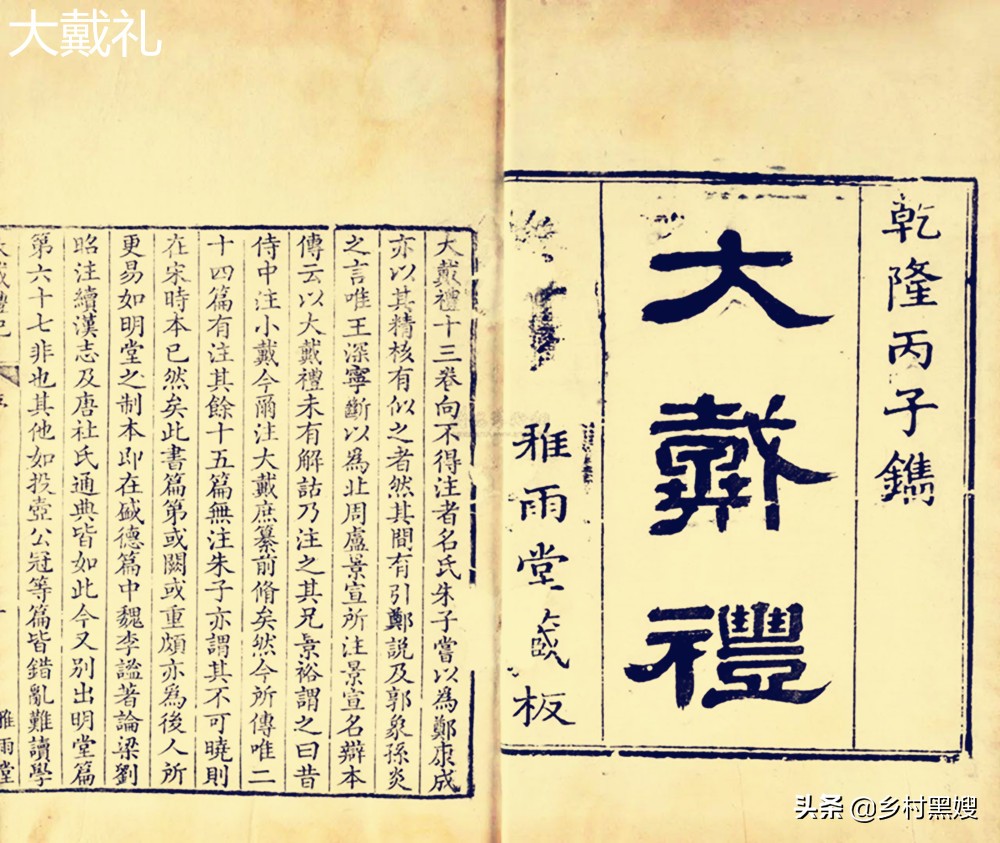 大戴礼
乾隆丙子鐫
大戴禮
雅雨堂藏板
大戴禮十三卷向不得注者名氏朱子嘗以為鄭康成
亦以其精核有似之者然其間有引鄭説及郭象孫炎
之言唯王深寧斷以為北周盧景宣所注景宣名辯本
傳云以大戴禮未有解詁乃注之其兄景裕謂之曰昔
侍中注小戴今爾注大戴庶纂前脩矣然今所傳唯二
十四篇有注其餘十五篇無注朱子亦謂其不可曉則
在宋時本已然矣此書篇第或闕或重頗亦為後人所
更易如明堂之制本即在盛德篇中魏李謐著論梁劉
昭注續漢志及唐杜氏通典皆如此今又别出明堂篇
第六十七非也其他如投壺公冠等篇皆錯亂難讀學
大戴禮記
雅雨堂
头条 @乡村黑嫂